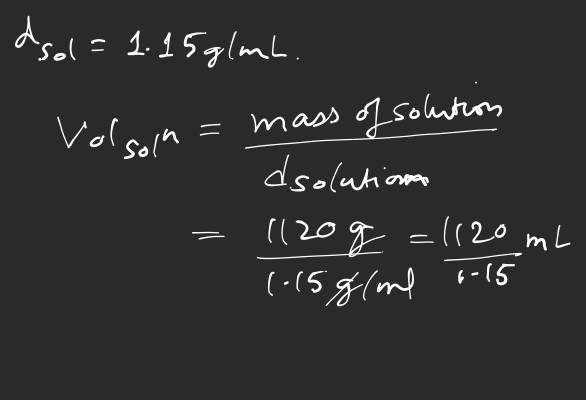 d sol = 1.15 g/mL.
Vol soln = mass of solution / d solution
= 1120 g / 1.15 g/ml = 1120 / 1.15 mL